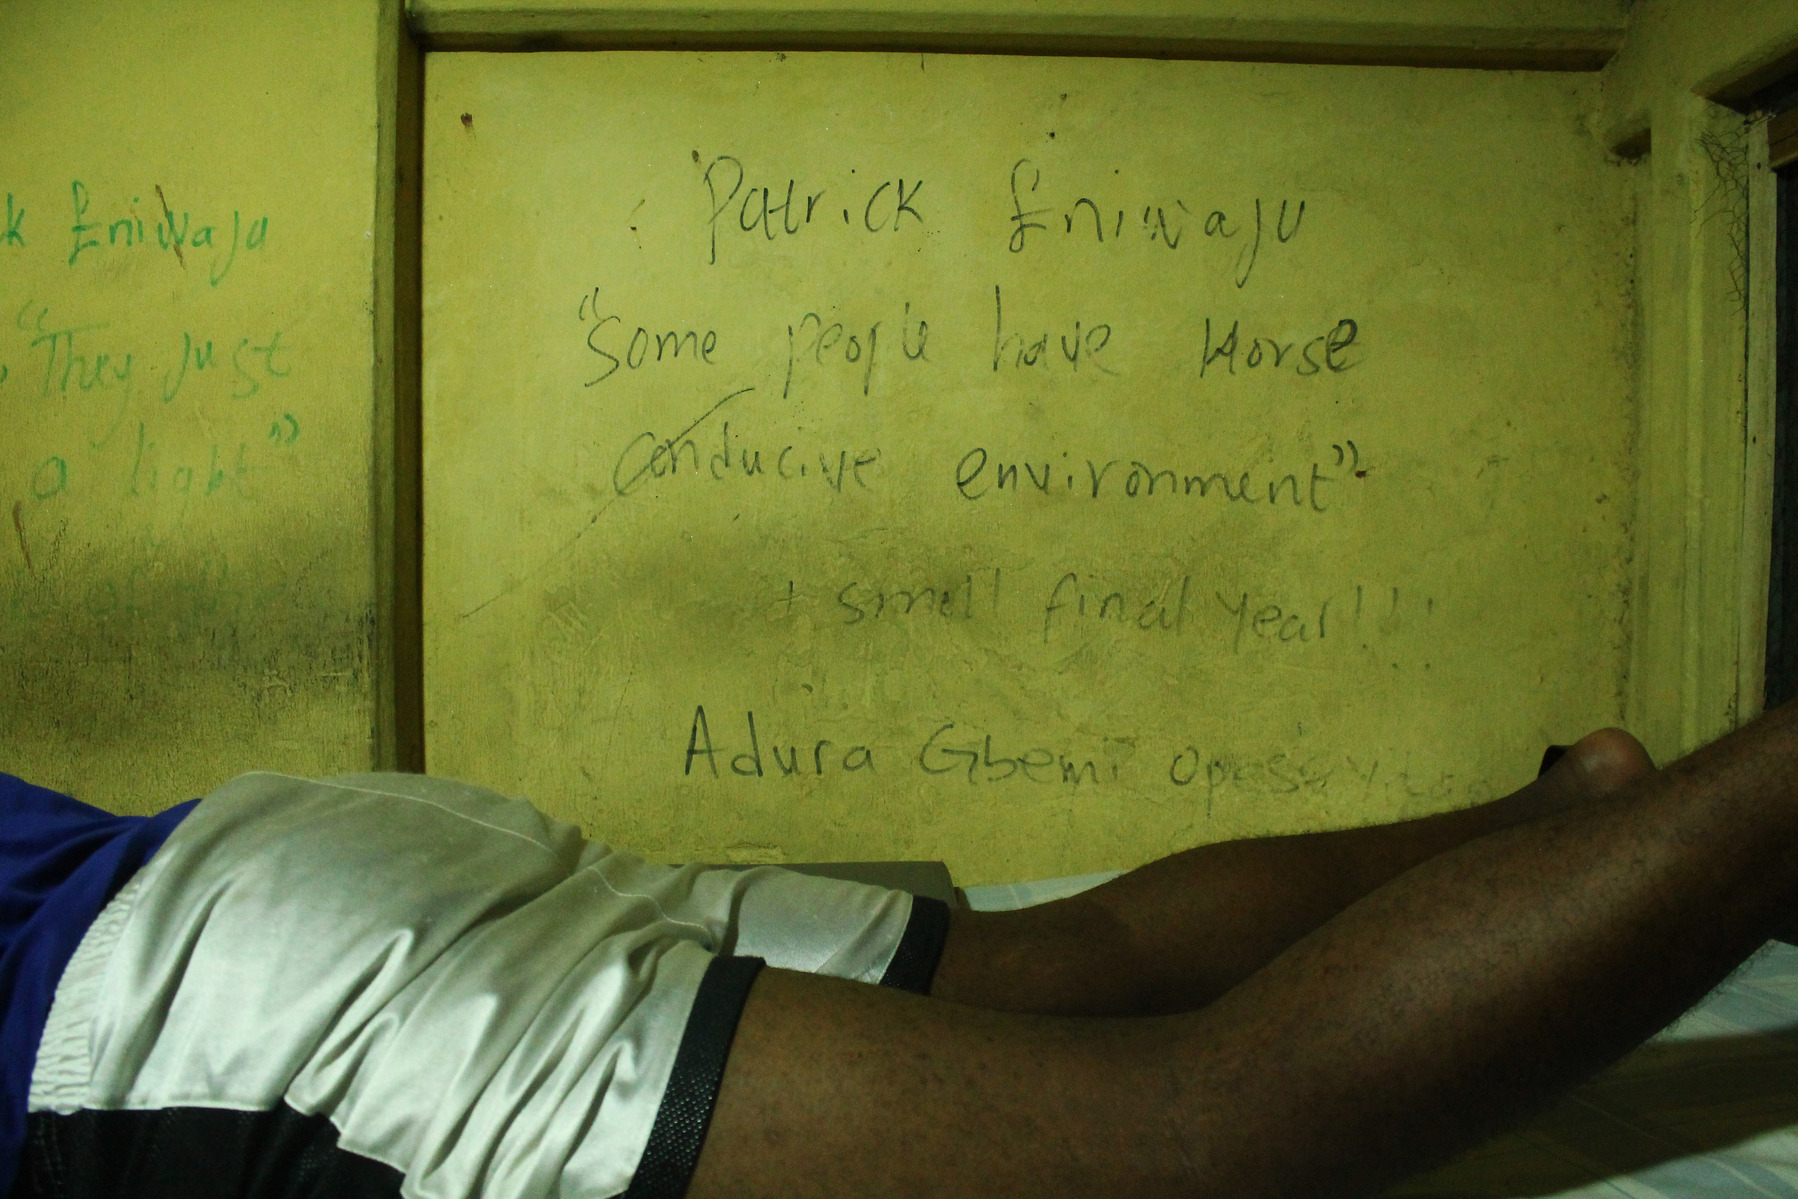 k Eniwaju
"They just
a light"
of the
Patrick Eniwaju
"Some people have Horse
conducive environment"
+ small final year!!!
Adura Gbemi